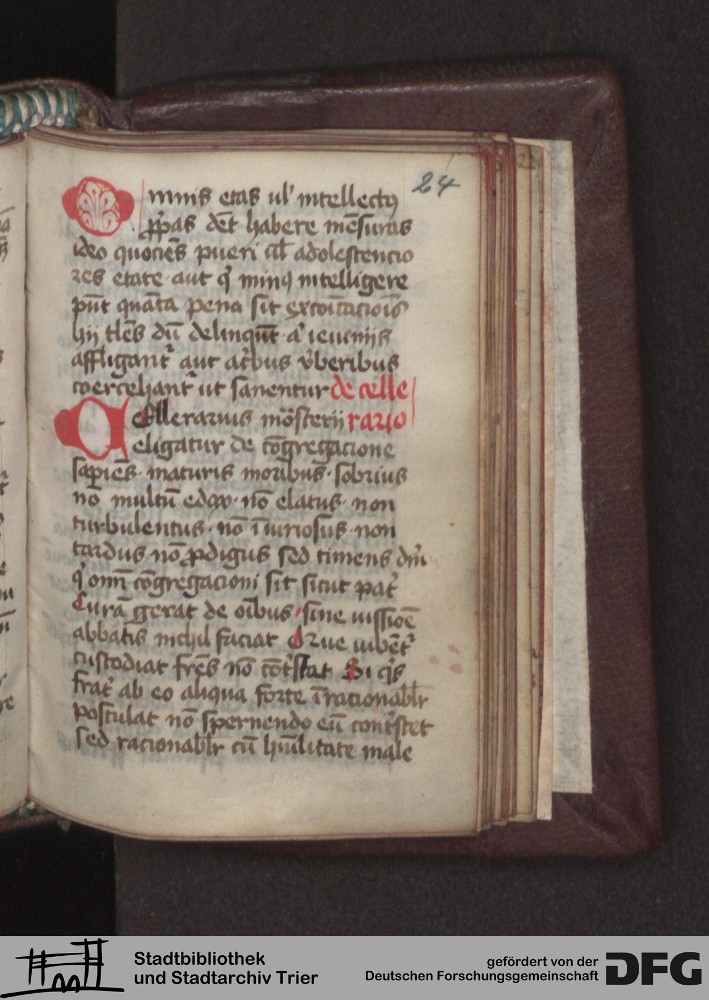 24
Omnis etas ul' intellectꝰ
ꝓp̄as det̄ habere mēsuras
ideo quociēs pueri ul̄ adolescencio
res etate aut q' minꝰ intelligere
pn̄t quāta pena sit excōicacionis
hii tles dū delinqūt a' ieiuniis
affligant᷑ aut acrbus v̄beribus
coercehant᷑ ut sanentur de celle
Cellerarius mōsterii rario
eligatur de cōgregacione
sapiēs maturis moribus sobrius
nō multū edax nō elatus non
turbulentus nō īiuriosus non
tardus nō ꝓdigus sed timens dm̄
q' omī cōgregacioni sit sicut pat᷑
Curā gerat de oībus sine iussiōe
abbatis nichil faciat Que iubēt᷑
custodiat frēs nō cōt'stat Si qis
frat᷑ ab eo aliqua forte īracionablr
postulat nō spernendo eū cont'stet
sed racionablr cū hūilitate male
Stadtbibliothek
und Stadtarchiv Trier
gefördert von der
Deutschen Forschungsgemeinschaft
DFG